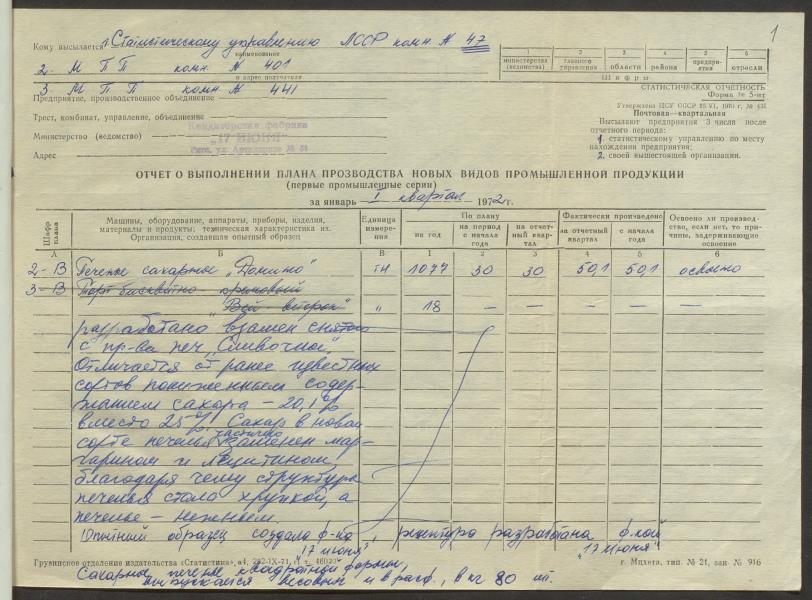 1
Кому высылается г. Статистическому управлению ЛССР комн. № 47
наименование
2. МПП комн № 401
и адрес получателя
3 МПП комн № 441
Предприятие, производственное объединение
Трест, комбинат, управление, объединение
Кондитерская фабрика
"17 ИЮНЯ"
Министерство (ведомство)
Рига, ул.
Адрес
1 2 3 4 5 6
министерства (ведомства) главного управления области района предприятия отрасли
Шифры
СТАТИСТИЧЕСКАЯ ОТЧЕТНОСТЬ
Форма № 5-нт
Утверждена ЦСУ СССР 25.VI. 1970 г. №
Почтовая—квартальная
Высылают предприятия 3 числа после
отчетного периода:
1. статистическому управлению по месту
нахождения предприятия;
2. своей вышестоящей организации.
ОТЧЕТ О ВЫПОЛНЕНИИ ПЛАНА ПРОЗВОДСТВА НОВЫХ ВИДОВ ПРОМЫШЛЕННОЙ ПРОДУКЦИИ
(первые промышленные серии)
за январь — I квартал 1972 г.
Шифр плана
Машины, оборудование, аппараты, приборы, изделия,
материалы и продукты, техническая характеристика их.
Организация, создавшая опытный образец
Единица измерения
По плану
на год
на период с начала года
на отчетный квартал
Фактически произведено
за отчетный квартал
с начала года
Освоено ли производство, если нет, то причины, задерживающие освоение
А Б В 1 2 3 4 5 6
2-В Печенье сахарное „Домино" тн 1077 30 30 50,1 50,1 освоено
3-В Торт бисквитно-кремовый
" 18 — — — — —
разработано взамен снятого
с пр-ва печ. „Сливочное".
Отличается от ранее известных
сортов пониженным содер-
жанием сахара — 20,1%
вместо 25%. Сахар в новом
сорте печенья частично заменен мар-
гарином и лецитином,
благодаря чему структура
печенья стала хрупкой, а
печенье — нежным.
Опытный образец создала ф-ка „17 июня", рецептура разработана ф-кой „17 июня"
Грузинское отделение издательства «Статистика», з4, 282-IX-71, г. Мцхета, тип. № 21, зак. № 916
Сахарное печенье квадратной формы,
выпускается весовым и в расф., в кг 80 шт.